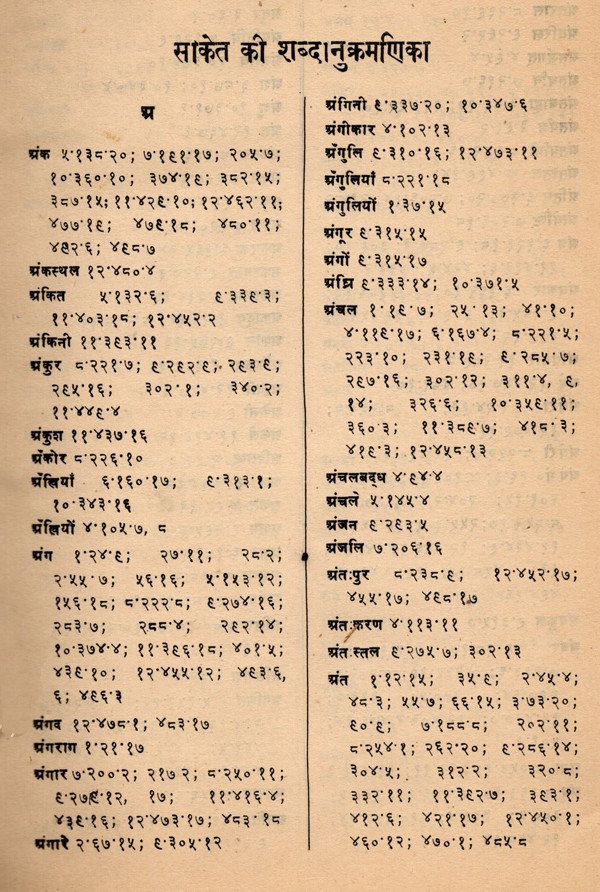 साकेत की शब्दानुक्रमणिका
अ
अंक ५·१३८·२०; ७·१९१·१७; २०५·७;
१०·३६०·१०; ३७४·१९; ३८२·१५;
३८७·१५; ११·४२९·१०; १२·४६२·११;
४७७·१९; ४७९·१८; ४८०·११;
४९२·६; ४९८·७
अंकस्थल १२·४८०·४
अंकित ५·१३२·६; ९·३३९·३;
११·४०३·१८; १२·४५२·२
अंकिनी ११·३९३·११
अंकुर ८·२२१·७; ९·२९२·९; २९३·९;
२९५·१६; ३०२·१; ३४०·२;
११·४४९·४
अंकुश ११·४३७·१६
अँकोर ८·२२६·१०
अँखियाँ ६·१६०·१७; ९·३१३·१;
१०·३४३·१६
अँखियों ४·१०५·७, ८
अंग १·२४·९; २७·११; २८·२;
२·५५·७; ५६·१६; ५·१५३·१२;
१५६·१८; ८·२२२·८; ९·२७४·१६;
२८३·७; २८८·४; २९२·१४;
१०·३७४·४; ११·३९६·१८; ४०१·५;
४३९·१०; १२·४५५·१२; ४९३·६,
६; ४९६·३
अंगद १२·४७८·१; ४८३·१७
अंगराग १·२१·१७
अंगार ७·२००·२; २१७·२; ८·२५०·११;
९·२७९·१२, १७; ११·४१६·४;
४३९·१६; १२·४७३·१७; ४८३·१८
अंगारे २·६७·१५; ९·३०५·१२
अंगिनी ९·३३७·२०; १०·३४७·६
अंगीकार ४·१०२·१३
अँगुलि ९·३१०·१६; १२·४७३·११
अँगुलियाँ ८·२२१·१८
अँगुलियों १·३७·१५
अंगूर ९·३१५·१५
अंगों ९·३१५·१७
अंघ्रि ९·३३३·१४; १०·३७१·५
अंचल १·१९·७; २५·१३; ४१·१०;
४·११९·१७; ६·१६७·४; ८·२२१·५;
२२३·१०; २३१·१९; ९·२८५·७;
२९७·१६; ३०२·१२; ३११·४, ९,
१४; ३२६·६; १०·३५९·११;
३६०·३; ११·३८९·७; ४१८·३;
४१९·३; १२·४५८·१३
अंचलबद्ध ४·९४·४
अंचले ५·१४५·४
अंजन ९·२९३·५
अंजलि ७·२०६·१६
अंतःपुर ८·२३८·९; १२·४५२·१७;
४५५·१७; ४९८·१७
अंतःकरण ४·११३·११
अंतःस्तल ९·२७५·७; ३०२·१३
अंत १·१२·१५; ३५·९; २·४५·४;
४८·३; ५५·७; ६६·१५; ३·७३·२०;
९०·९; ७·१८८·८; २०२·११;
८·२५४·१; २६२·२०; ९·२८६·१४;
३०४·५; ३१२·२; ३२०·८;
३३२·११; ११·३९२·७; ३९३·१;
४१२·६; ४२१·१७; १२·४५०·१;
४६०·१२; ४७०·१; ४८५·८